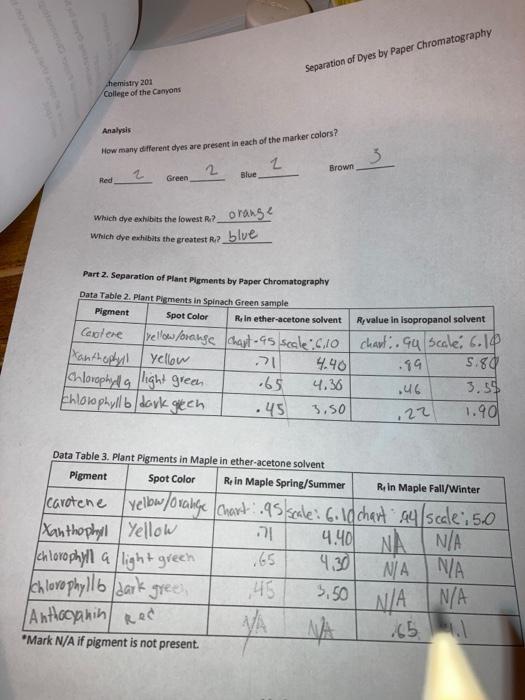 Separation of Dyes by Paper Chromatography
Chemistry 201
College of the Canyons
Analysis
How many different dyes are present in each of the marker colors?
Red 2 Green 2 Blue 2 Brown 3
Which dye exhibits the lowest Rf? orange
Which dye exhibits the greatest Rf? blue
Part 2. Separation of Plant Pigments by Paper Chromatography
Data Table 2. Plant Pigments in Spinach Green sample
Pigment Spot Color Rf in ether-acetone solvent Rf value in isopropanol solvent
Carotene yellow/orange chart .95 scale: 6.10 chart: .94 scale: 6.10
Xanthophyll yellow .71 4.40 .89 5.80
Chlorophyll a light green .65 4.30 .46 3.55
Chlorophyll b dark green .45 3.50 .22 1.90
Data Table 3. Plant Pigments in Maple in ether-acetone solvent
Pigment Spot Color Rf in Maple Spring/Summer Rf in Maple Fall/Winter
Carotene yellow/orange Chart: .95 scale: 6.10 chart .94 scale: 5.0
Xanthophyll Yellow .71 4.40 N/A N/A
chlorophyll a light green .65 4.30 N/A N/A
chlorophyll b dark green .45 3.50 N/A N/A
Anthocyanin Red N/A N/A .65
*Mark N/A if pigment is not present.